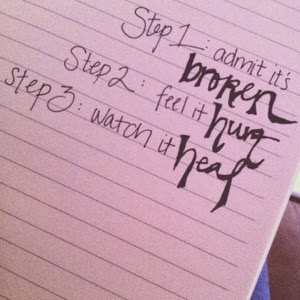 Step 1: admit it's
broken
Step 2: feel it hurt
step 3: watch it heal